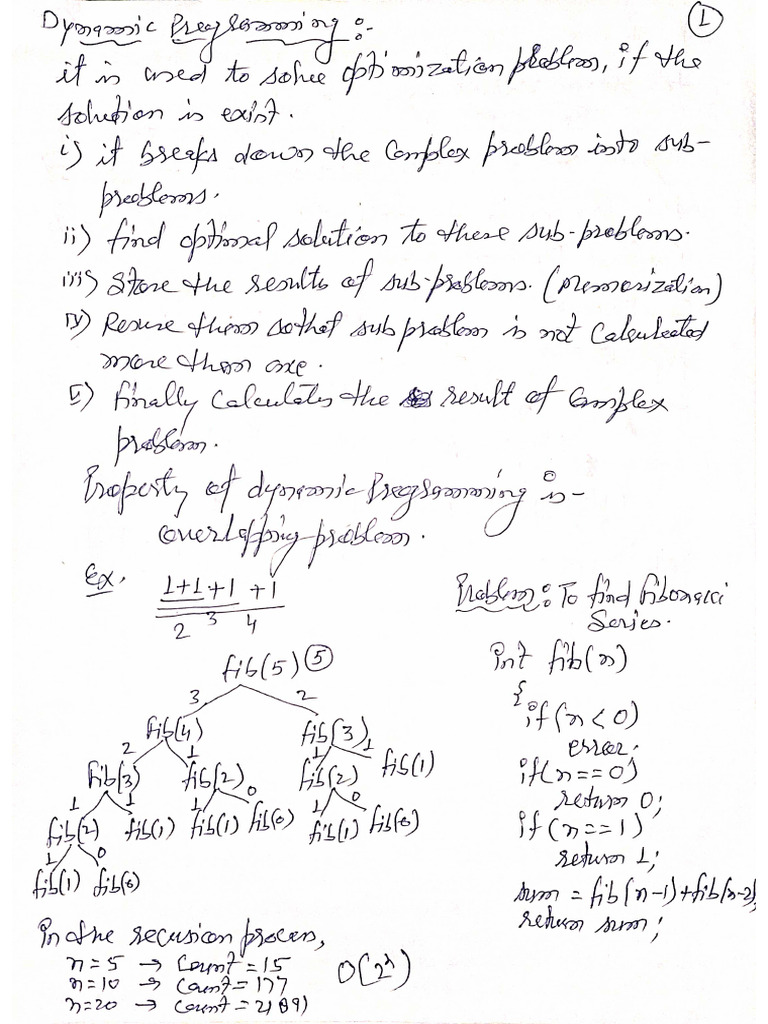 Dynamic Programming :-
1
it is used to solve optimization problem, if the
solution is exist.
i) it breaks down the Complex problem into sub-
problems.
ii) find optimal solution to these sub-problems.
iii) Store the results of sub-problems. (Memorization)
iv) Resuse them so that sub problem is not Calculated
more than one.
v) finally calculates the result of Complex
problem.
Property of dynamic Programming is -
overlapping problem.
Ex. 1+1+1+1
2 3 4
Problem: To find Fibonacci
Series.
fib(5) 5
3 2
fib(4) fib(3)
2 1 1 1
fib(3) fib(2) fib(2) fib(1)
1 1 1 0 1 0
fib(2) fib(1) fib(1) fib(0) fib(1) fib(0)
1 0
fib(1) fib(0)
int fib(n)
{
if(n<0)
error;
if(n==0)
return 0;
if(n==1)
return 1;
sum = fib(n-1)+fib(n-2)
return sum;
In the recusion process,
n=5 → Count = 15
n=10 → Count = 177
n=20 → Count = 21891